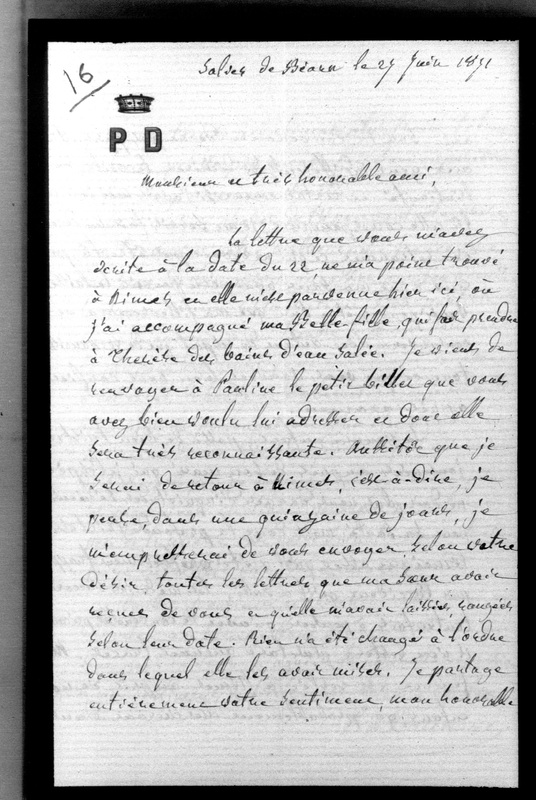 16
Salies de Béarn le 27 Juin 1891
P D
Monsieur et très honorable ami,
La lettre que vous m'avez
écrite à la date du 22, ne m'a point trouvé
à Nimes et elle m'est parvenue hier ici, où
j'ai accompagné ma Belle-fille, qui fait prendre
à Thérèse des bains d'eau salée. Je viens de
renvoyer à Pauline le petit billet que vous
avez bien voulu lui adresser et dont elle
sera très reconnaissante. Aussitôt que je
serai de retour à Nimes, c'est-à-dire, je
pense, dans une quinzaine de jours, je
m'empresserai de vous envoyer, selon votre
désir, toutes les lettres que ma Sœur avait
reçues de vous et qu'elle m'avait laissées, rangées
selon leur date. Rien n'a été changé à l'ordre
dans lequel elle les avait mises. Je partage
entièrement votre sentiment, mon honorable